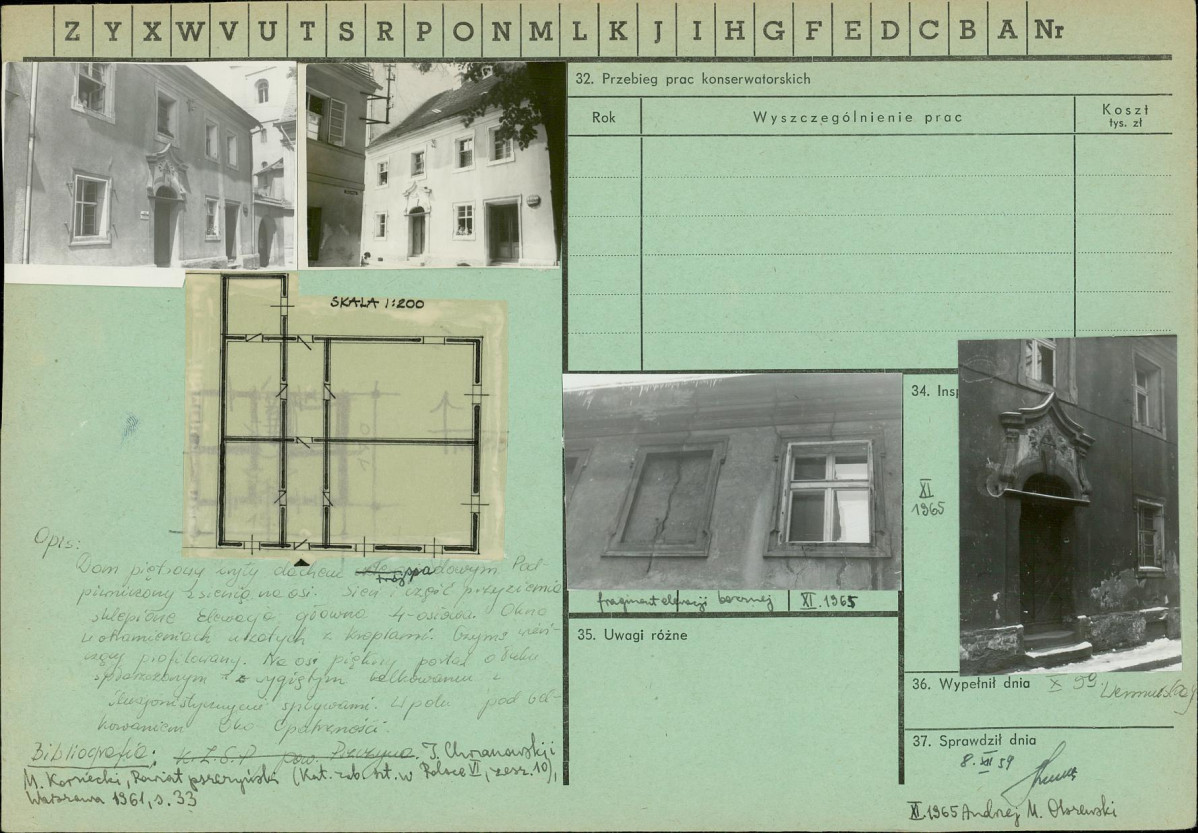 Z Y X W V U T S R P O N M L K J I H G F E D C B A Nr
32. Przebieg prac konserwatorskich
Rok
Wyszczególnienie prac
Koszt
tys. zł
SKALA 1:200
34. Insp
XI
1965
fragment elewacji bocznej
XI.1965
35. Uwagi różne
36. Wypełnił dnia X 59
37. Sprawdził dnia
8. XII 59
XI.1965 Andrzej M. Olszewski
Opis:
Dom piętrowy kryty dachem trójspadowym Pod-
piwniczony z sienią na osi. Sień i część przyziemia
sklepione Elewacja główna 4-osiowa. Okna
w obramieniach uszatych z kroplami. Gzyms wień-
czący profilowany. Na osi piękny portal o łuku
spłaszczonym z wygiętym belkowaniem i
spływami. W polu pod bel-
kowaniem Oko Opatrzności.
Bibliografia: K.Z.S.P. pow. Pszczyna. T. Chrzanowski i
M. Kornecki, Powiat pszczyński (Kat. zab. szt. w Polsce VI, zesz. 10),
Warszawa 1961, s. 33